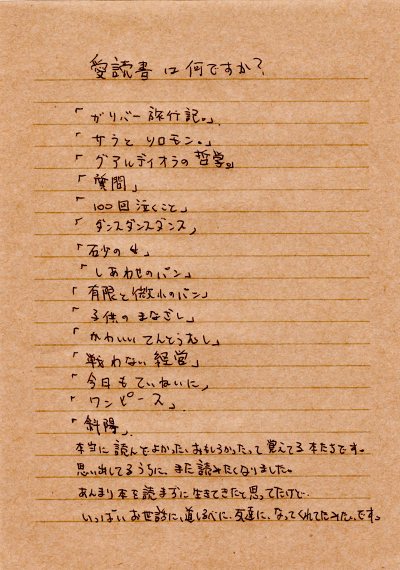 愛読書は何ですか?
「ガリバー旅行記。」
「サラとソロモン。」
「グアルディオラの哲学」
「質問」
「100回泣くこと」
「ダンスダンスダンス」
「砂の女」
「しあわせのパン」
「有限と微小のパン」
「子供のまなざし」
「かわいいてんとうむし」
「戦わない経営」
「今日もていねいに」
「ワンピース」
「斜陽」
本当に読んでよかった、おもしろかったって覚えてる本たちです。
思い出してるうちに、また読みたくなりました。
あんまり本を読まずに生きてきたと思ってたけど、
いっぱいお世話に、道しるべに、友達に、なってくれてたみたいです。